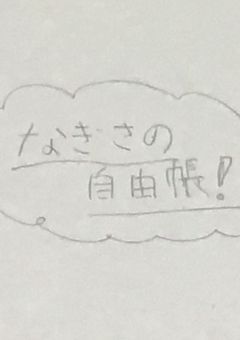 なぎさの
自由帳!